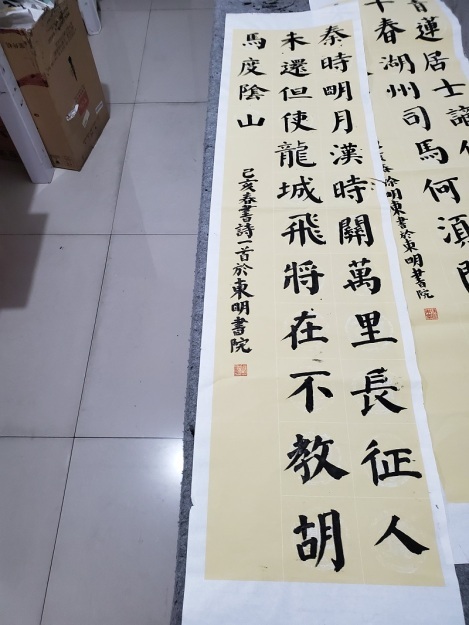 青蓮居士謫
十春湖州司馬何須問
徐明東書於東明書院
秦時明月漢時關萬里長征人
未還但使龍城飛將在不教胡
馬度陰山
己亥春書詩一首於東明書院